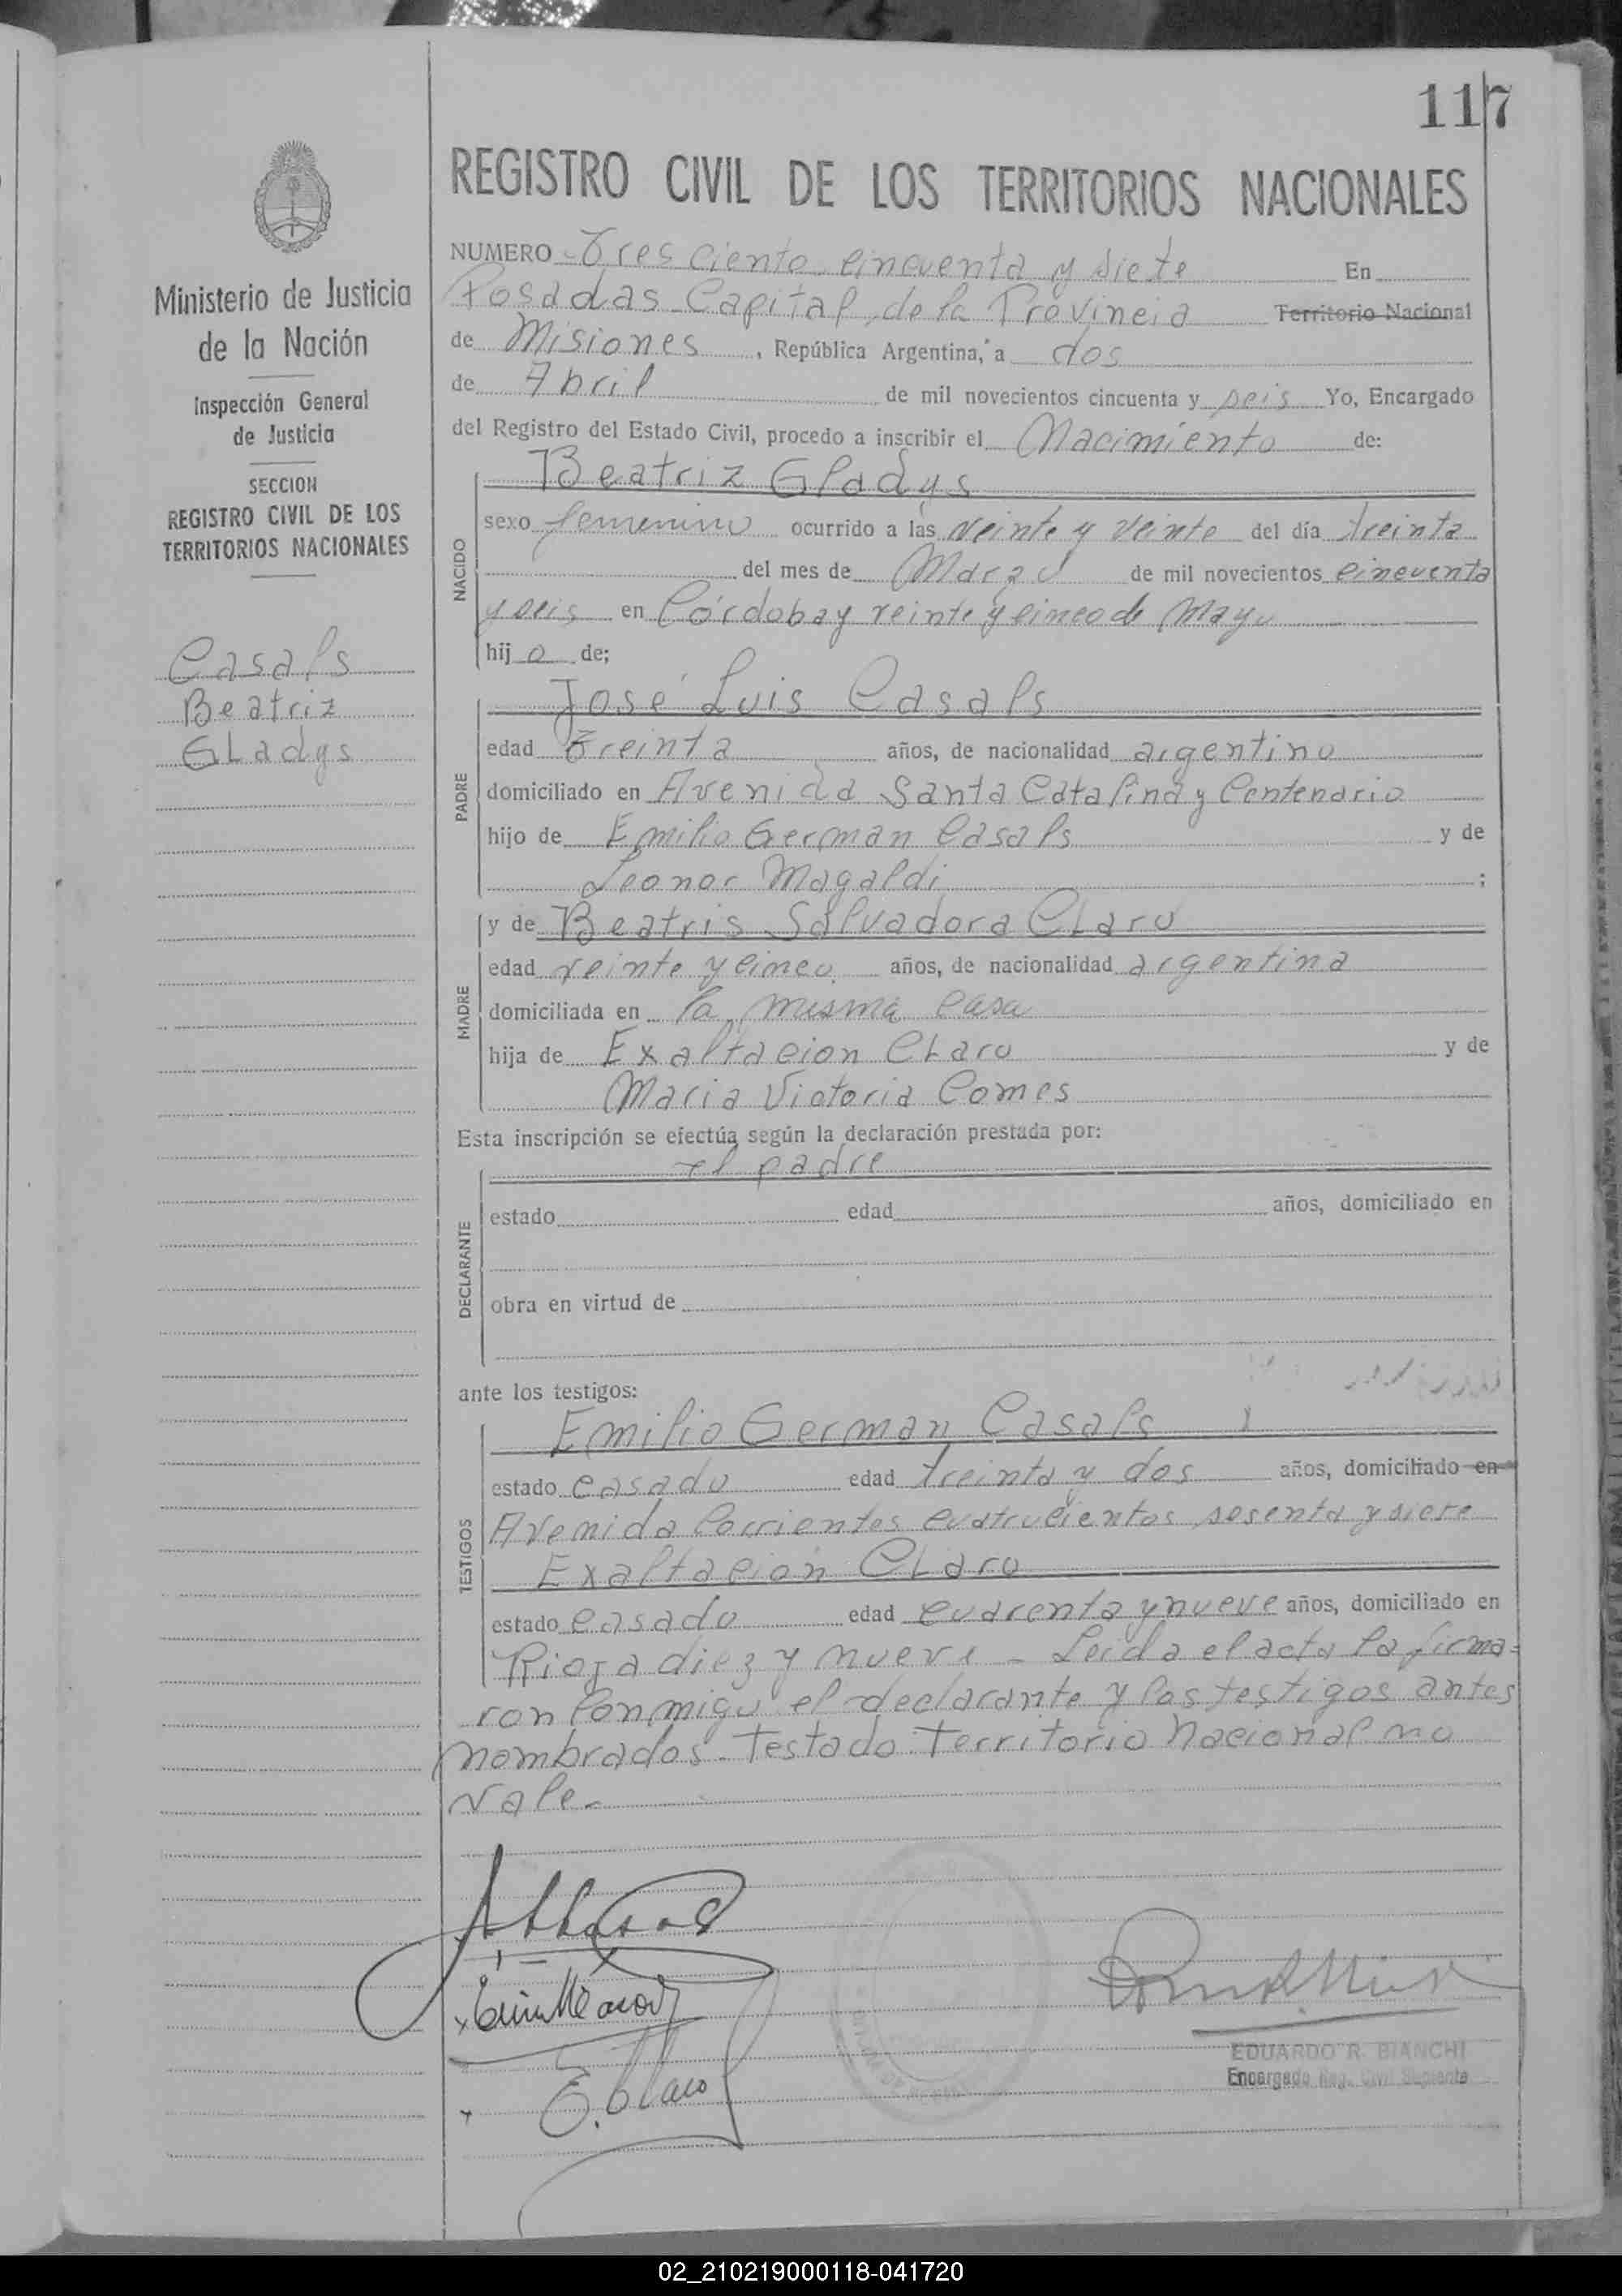 117
REGISTRO CIVIL DE LOS TERRITORIOS NACIONALES
Ministerio de Justicia
de la Nación
Inspección General
de Justicia
SECCION
REGISTRO CIVIL DE LOS
TERRITORIOS NACIONALES
Casals
Beatriz
Gladys
NUMERO Tres ciento cincuenta y siete En
Posadas Capital, de la Provincia Territorio Nacional
de Misiones, República Argentina, a dos
de Abril de mil novecientos cincuenta y seis Yo, Encargado
del Registro del Estado Civil, procedo a inscribir el Nacimiento de:
NACIDO
Beatriz Gladys
sexo femenino ocurrido a las veinte y veinte del día treinta
del mes de Marzo de mil novecientos cincuenta
y seis en Córdoba y veinte y cinco de Mayo
hij a de;
PADRE
José Luis Casals
edad treinta años, de nacionalidad argentino
domiciliado en Avenida Santa Catalina y Centenario
hijo de Emilio German Casals y de
Leonor Magaldi ;
MADRE
y de Beatris Salvadora Claro
edad veinte y cinco años, de nacionalidad argentina
domiciliada en la misma casa
hija de Exaltacion Claro y de
Maria Victoria Comes
Esta inscripción se efectúa según la declaración prestada por:
DECLARANTE
el padre
estado edad años, domiciliado en
obra en virtud de
ante los testigos:
TESTIGOS
Emilio German Casals
estado casado edad treinta y dos años, domiciliado en
Avenida Corrientes cuatrocientos sesenta y siete
Exaltacion Claro
estado casado edad cuarenta y nueve años, domiciliado en
Rioja diez y nueve - Leida el acta la firma=
ron conmigo el declarante y los testigos antes
nombrados. Testado Territorio Nacional no
vale.
E. Claro
EDUARDO R. BIANCHI
Encargado Reg. Civil Suplente
02_210219000118-041720